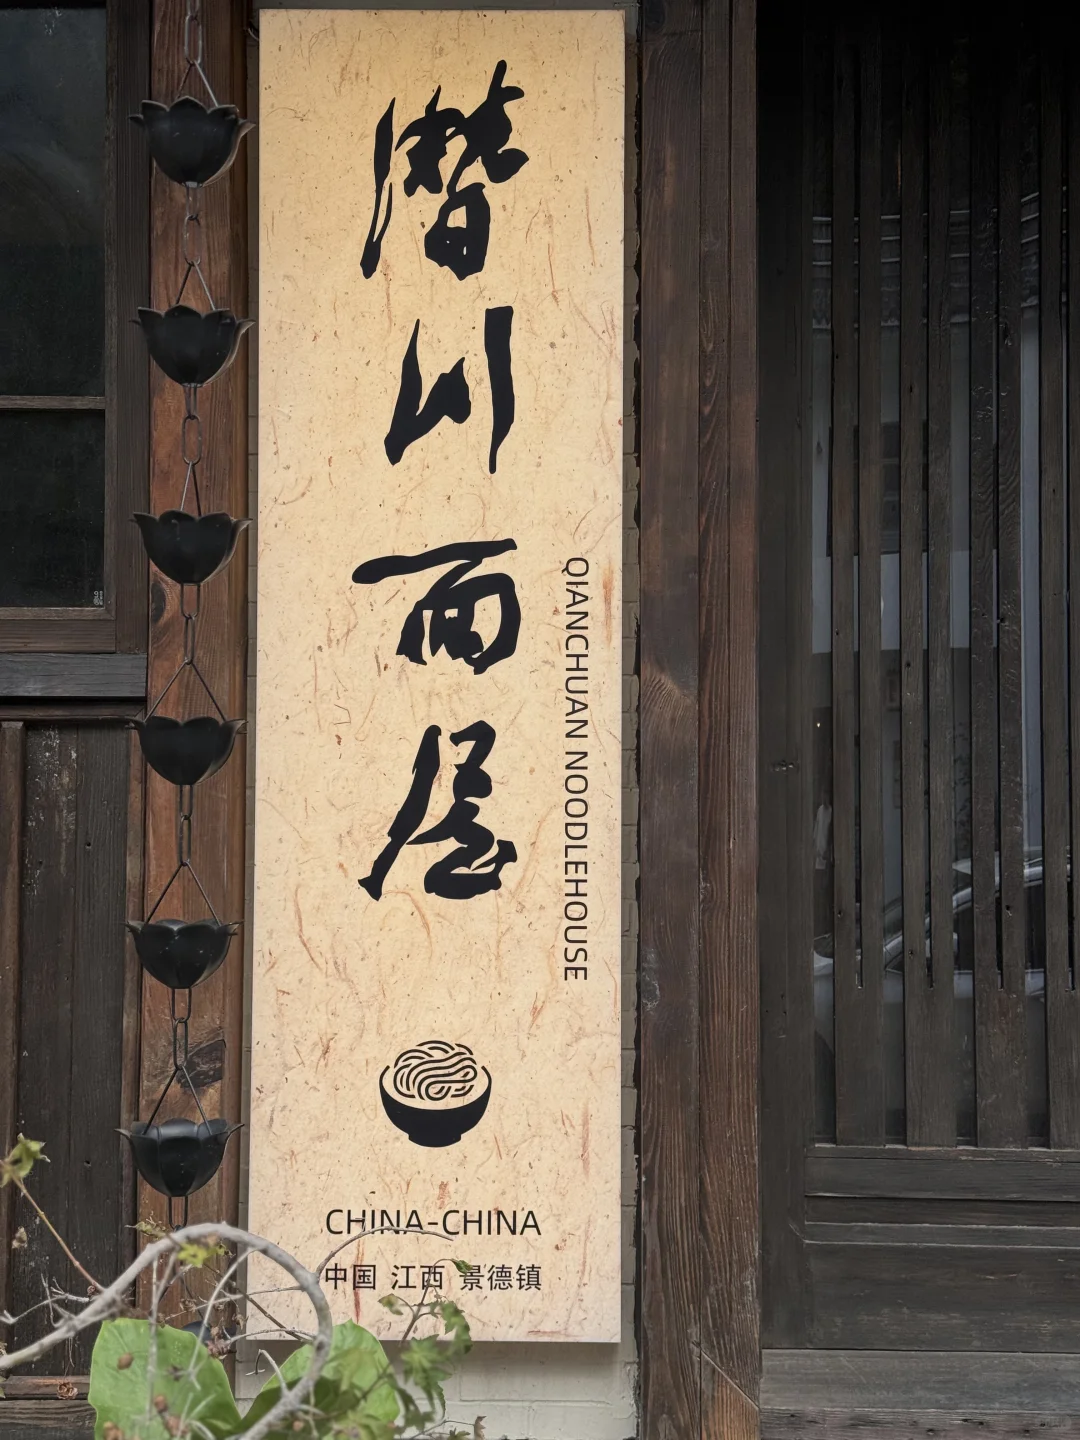 潜川面屋
QIANCHUAN NOODLEHOUSE
CHINA-CHINA
中国 江西 景德镇